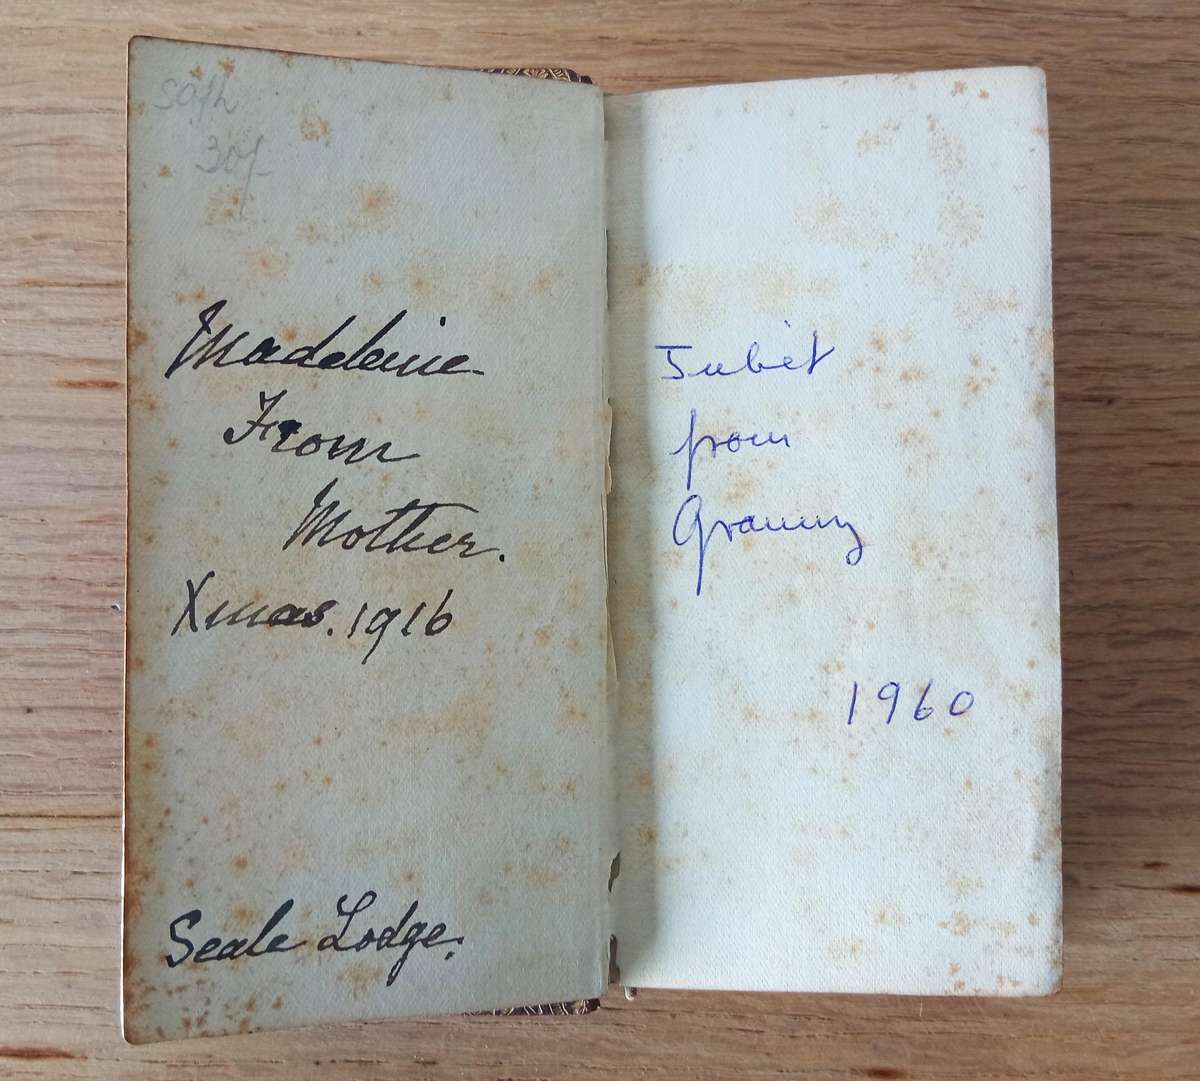 30/-
Madeleine
From
Mother.
Xmas. 1916
Seale Lodge.
Juliet
from
Granny
1960